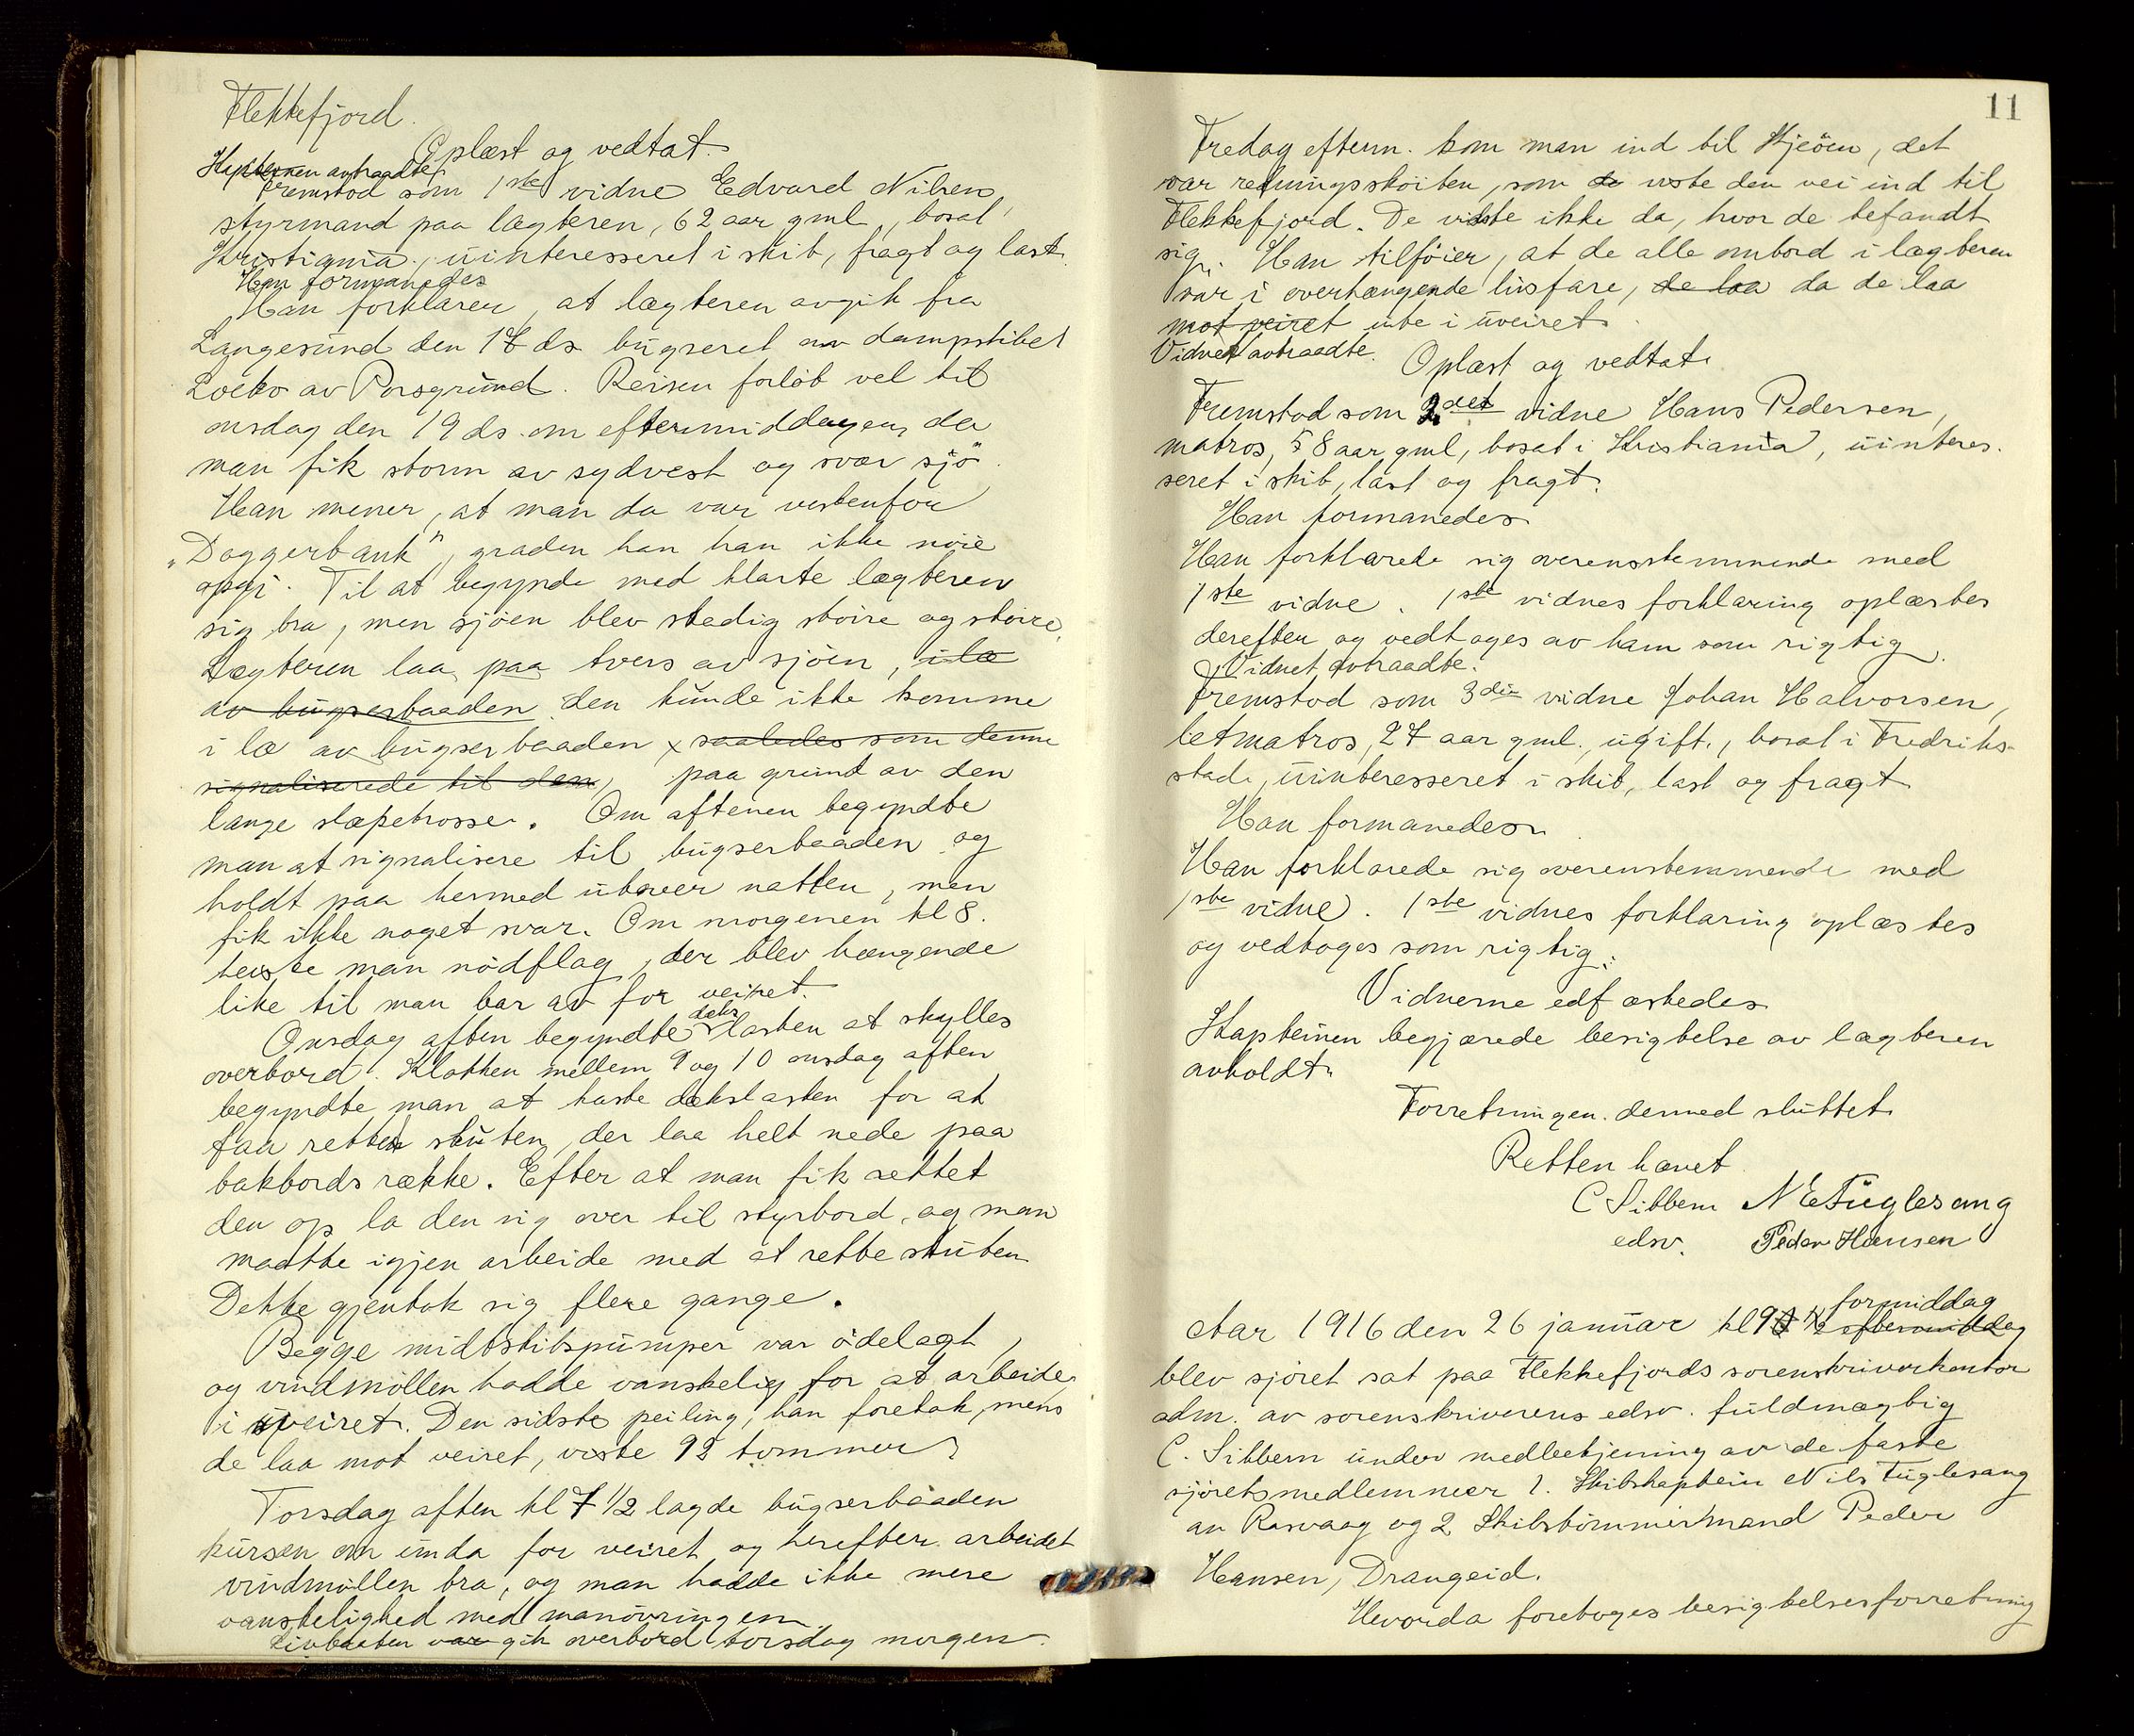 Flekkefjord.
Oplæst og vedtat.
Kapteinen avtraadte.
Fremstod som 1ste vidne Edvard Nilsen,
styrmand paa lægteren, 62 aar gml, bosat
Kristiania, uinteresseret i skib, fragt og last.
Han formanedes
Han forklarer, at lægteren avgik fra
Langesund den 17 ds bugseret av dampskibet
av Porsgrund. Reisen forløb vel til
onsdag den 19 ds. om eftermiddagen, da
man fik storm av sydvest og svær sjö.
Han mener, at man da var vestenfor
"Doggerbank", graden kan han ikke nöie
opgi. Til at begynde med klarte lægteren
sig bra, men sjöen blev stedig störe og störe.
Lægteren laa paa tvers av sjöen, i læ
av bugserbaaden den kunde ikke komme
i læ av bugserbaaden x saaledes som denne
signaliserede til dem, paa grund av den
lange slæpetrosse. Om aftenen begyndte
man at signalisere til bugserbaaden og
holdt paa hermed utover natten, men
fik ikke noget svar. Om morgenen kl 8.
heiste man nödflag, der blev hængende
like til man bar av for veiret.
deks
Onsdag aften begyndte lasten at skylles
overbord. Klokken mellem 9 og 10 onsdag aften
begyndte man at kaste dekslasten for at
faa rettet skuten, der laa helt nede paa
bakbords række. Efter at man fik rettet
den op la den sig over til styrbord, og man
maatte igjen arbeide med at rette skuten
Dette gjentok sig flere gange.
Begge midtskibspumper var ödelagt,
og vindmöllen hadde vanskelig for at arbeide
i uveiret. Den sidste peiling, han foretok, mens
de laa mot veiret, viste 92 tommer.
Torsdag aften kl 7 1/2 lagde bugserbaaden
kursen om unda for veiret og herefter arbeidet
vindmöllen bra, og man hadde ikke mere
vanskelighed med manövringen.
Livbaaten var gik overbord torsdag morgen.
11
Fredag efterm. kom man ind til Hjeöen, det
var redningsskoiten, som de viste den vei ind til
Flekkefjord. De visste ikke da, hvor de befandt
sig. Han tilföier, at de alle ombord i lægteren
var i overhængende livsfare, de laa da de laa
mot veiret ute i uveiret.
Vidnet avtraadte.
Oplæst og vedtat.
Fremstod som 2det vidne Hans Pedersen,
matros, 58 aar gml, bosat i Kristiania, uinteres-
seret i skib, last og fragt.
Han formanedes.
Han forklarede sig overensstemmende med
1ste vidne. 1ste vidnes forklaring oplæstes
derefter og vedtoges av ham som rigtig.
Vidnet avtraadte.
Fremstod som 3die vidne Johan Halvorsen,
letmatros, 27 aar gml., ugift, bosat i Fredriks-
stad, uinteresseret i skib, last og fragt
Han formanedes.
Han forklarede sig overensstemmende med
1ste vidne. 1ste vidnes forklaring oplæstes
og vedtoges som rigtig.
Vidnerne edfæstedes.
Kapteinen begjærede besigtelse av lægteren
avholdt.
Forretningen dermed sluttet.
Retten hævet
C Sibbern N E Fuglesang
edsv. Peder Hansen
formiddag
Aar 1916 den 26 januar kl 9 1/2 eftermiddag
blev sjöret sat paa Flekkefjords sorenskriverkontor
adm. av sorenskriverens edsv. fuldmægtig
C. Sibbern under medbetjening av de faste
sjöretsmedlemmer 1. Skibskaptein Nils Fuglesang
av Rasvaag og 2 Skibstömmermand Peder
Hansen, Drangeid.
Hvorda foretoges besigtelsesforretning